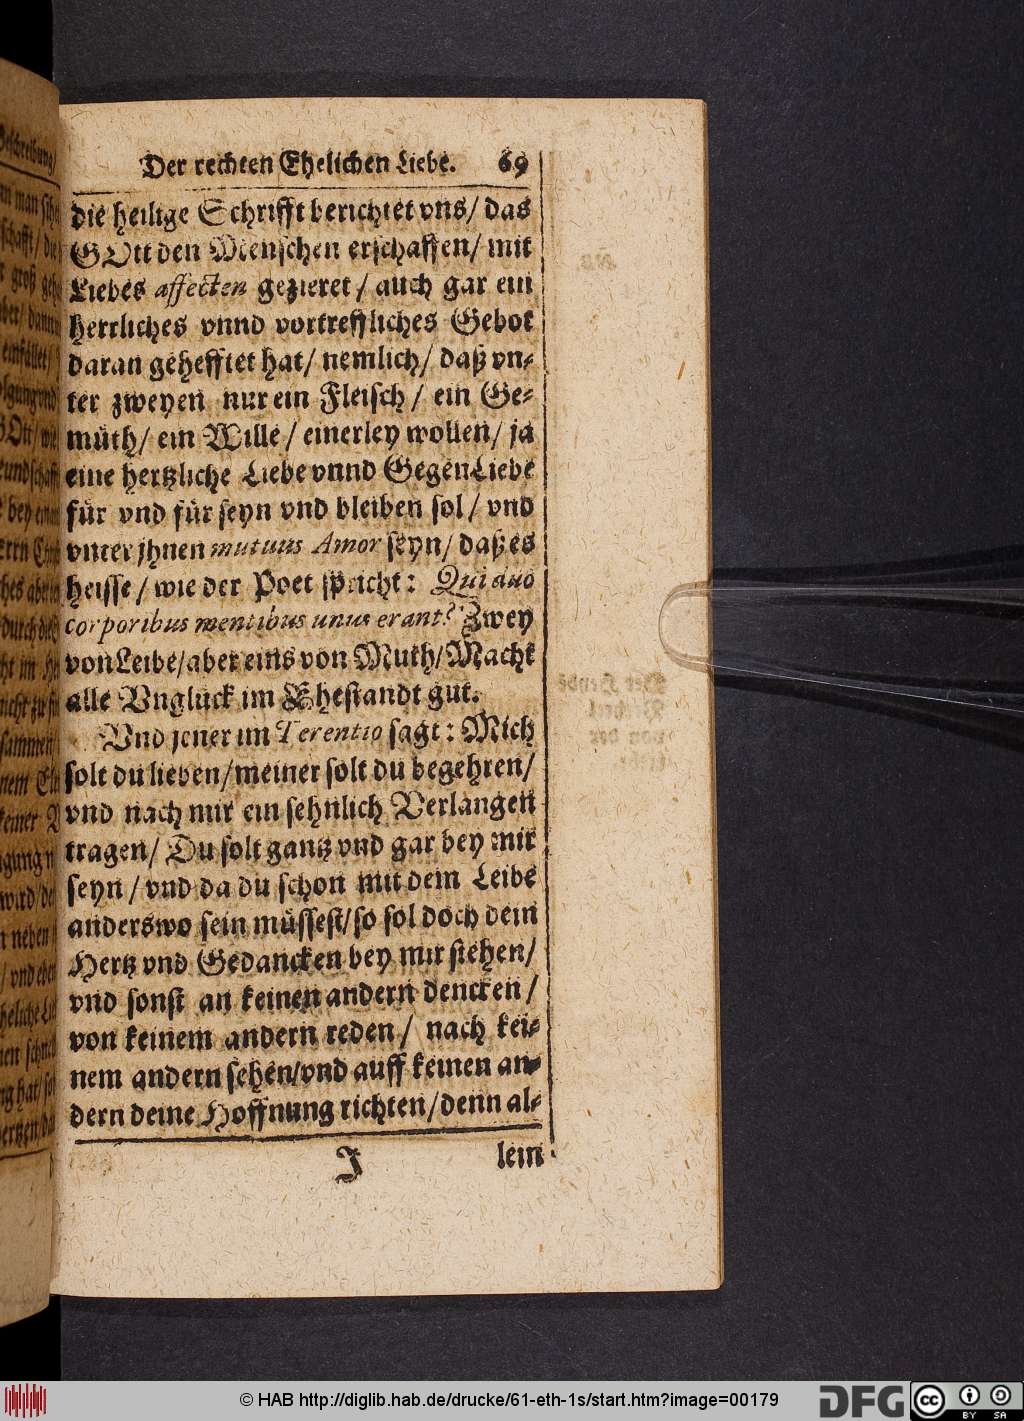 Der rechten Ehelichen Liebe. 69
die heilige Schrifft berichtet vns/ das
GOtt den Menschen erschaffen/ mit
Liebes affecten gezieret/ auch gar ein
herrliches vnnd vortreffliches Gebot
daran gehefftet hat/ nemlich/ daß vn-
ter zweyen nur ein Fleisch/ ein Ge-
müth/ ein Wille/ einerley wollen/ ja
eine hertzliche Liebe vnnd GegenLiebe
für vnd für seyn vnd bleiben sol/ vnd
vnter jhnen mutuus Amor seyn/ daß es
heisse/ wie der Poet spricht: Qui duo
corporibus mentibus unus erant? Zwey
von Leibe/ aber eins von Muth/ Macht
alle Vnglück im Ehestandt gut.
Vnd jener im Terentio sagt: Mich
solt du lieben/ meiner solt du begehren/
vnd nach mir ein sehnlich Verlangen
tragen/ Du solt gantz vnd gar bey mir
seyn/ vnd da du schon mit dem Leibe
anderswo sein müssest/ so sol doch dein
Hertz vnd Gedancken bey mir stehen/
vnd sonst an keinen andern dencken/
von keinem andern reden/ nach kei-
nem andern sehen/ vnd auff keinen an-
dern deine Hoffnung richten/ denn al-
J lein
© HAB http://diglib.hab.de/drucke/61-eth-1s/start.htm?image=00179
DFG
cc BY SA